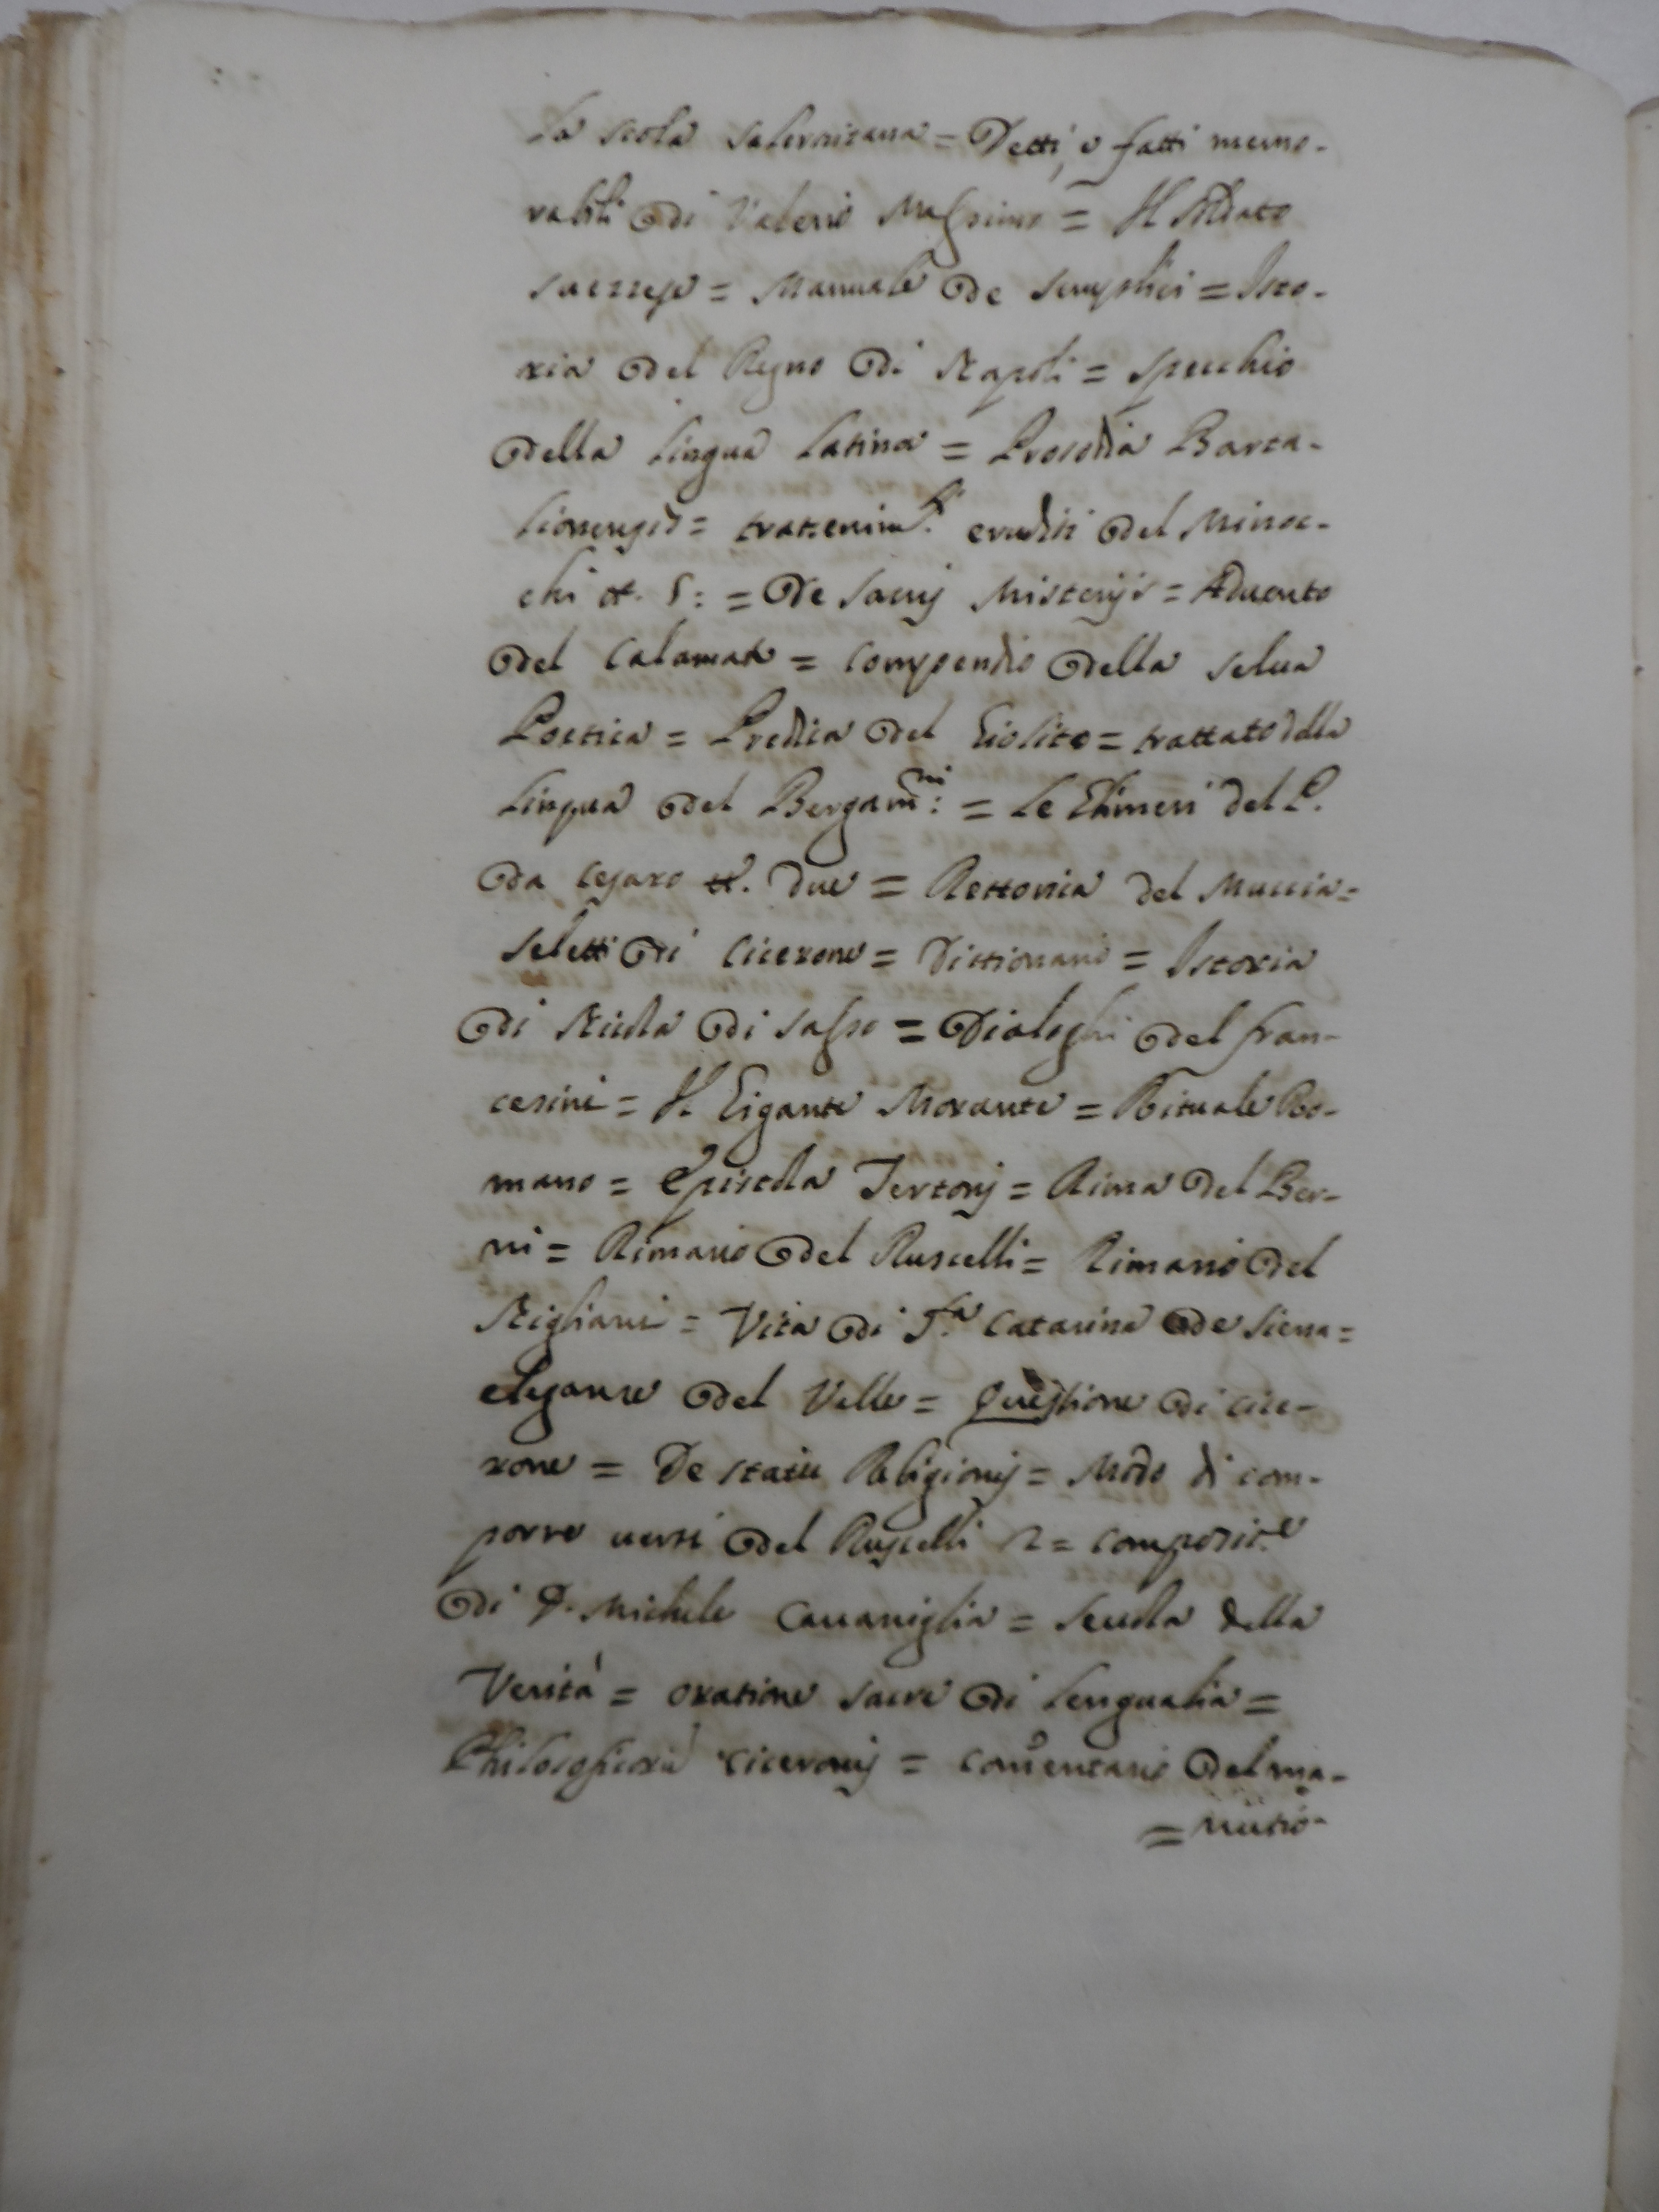 La scola salernitana = Detti, e fatti memo-
rabili di Valerio Massimo = Il soldato
suezzese = Manuale de semplici = Isto-
ria del Regno di Napoli = specchio
della lingua latina = Prosodia Barca-
lionengis = trattenim.ti eruditi del Minoc-
chi tt. 5: = De sacris Misterijs = Aduento
del Calamato = compendio della selua
Poetica = Predica del Giolito = trattato della
lingua del Bergam:ni = Le Efimeri del P.
da Cesaro tt. due = Rettorica del Muccia =
seletti di Cicerone = Dittionario = Istoria
di Nicola di Sasso = Dialoghi del fran-
cesini = Il Gigante Morante = Rituale Ro-
mano = Epistola Textorij = Rima del Ber-
ni = Rimario del Ruscelli = Rimario del
Stigliani = Vita di S.ta Catarina de Siena =
eleganze del Valle = Questione di Cice-
rone = De statu Religionis = Modo di com-
porre uersi del Ruscelli 2 = composit.e
di D. Michele Cauaniglia = scuola della
Verità = oratione sacre di Lengualia =
Philosophicorũ Ciceronis = comentario del ma-
= nutio -